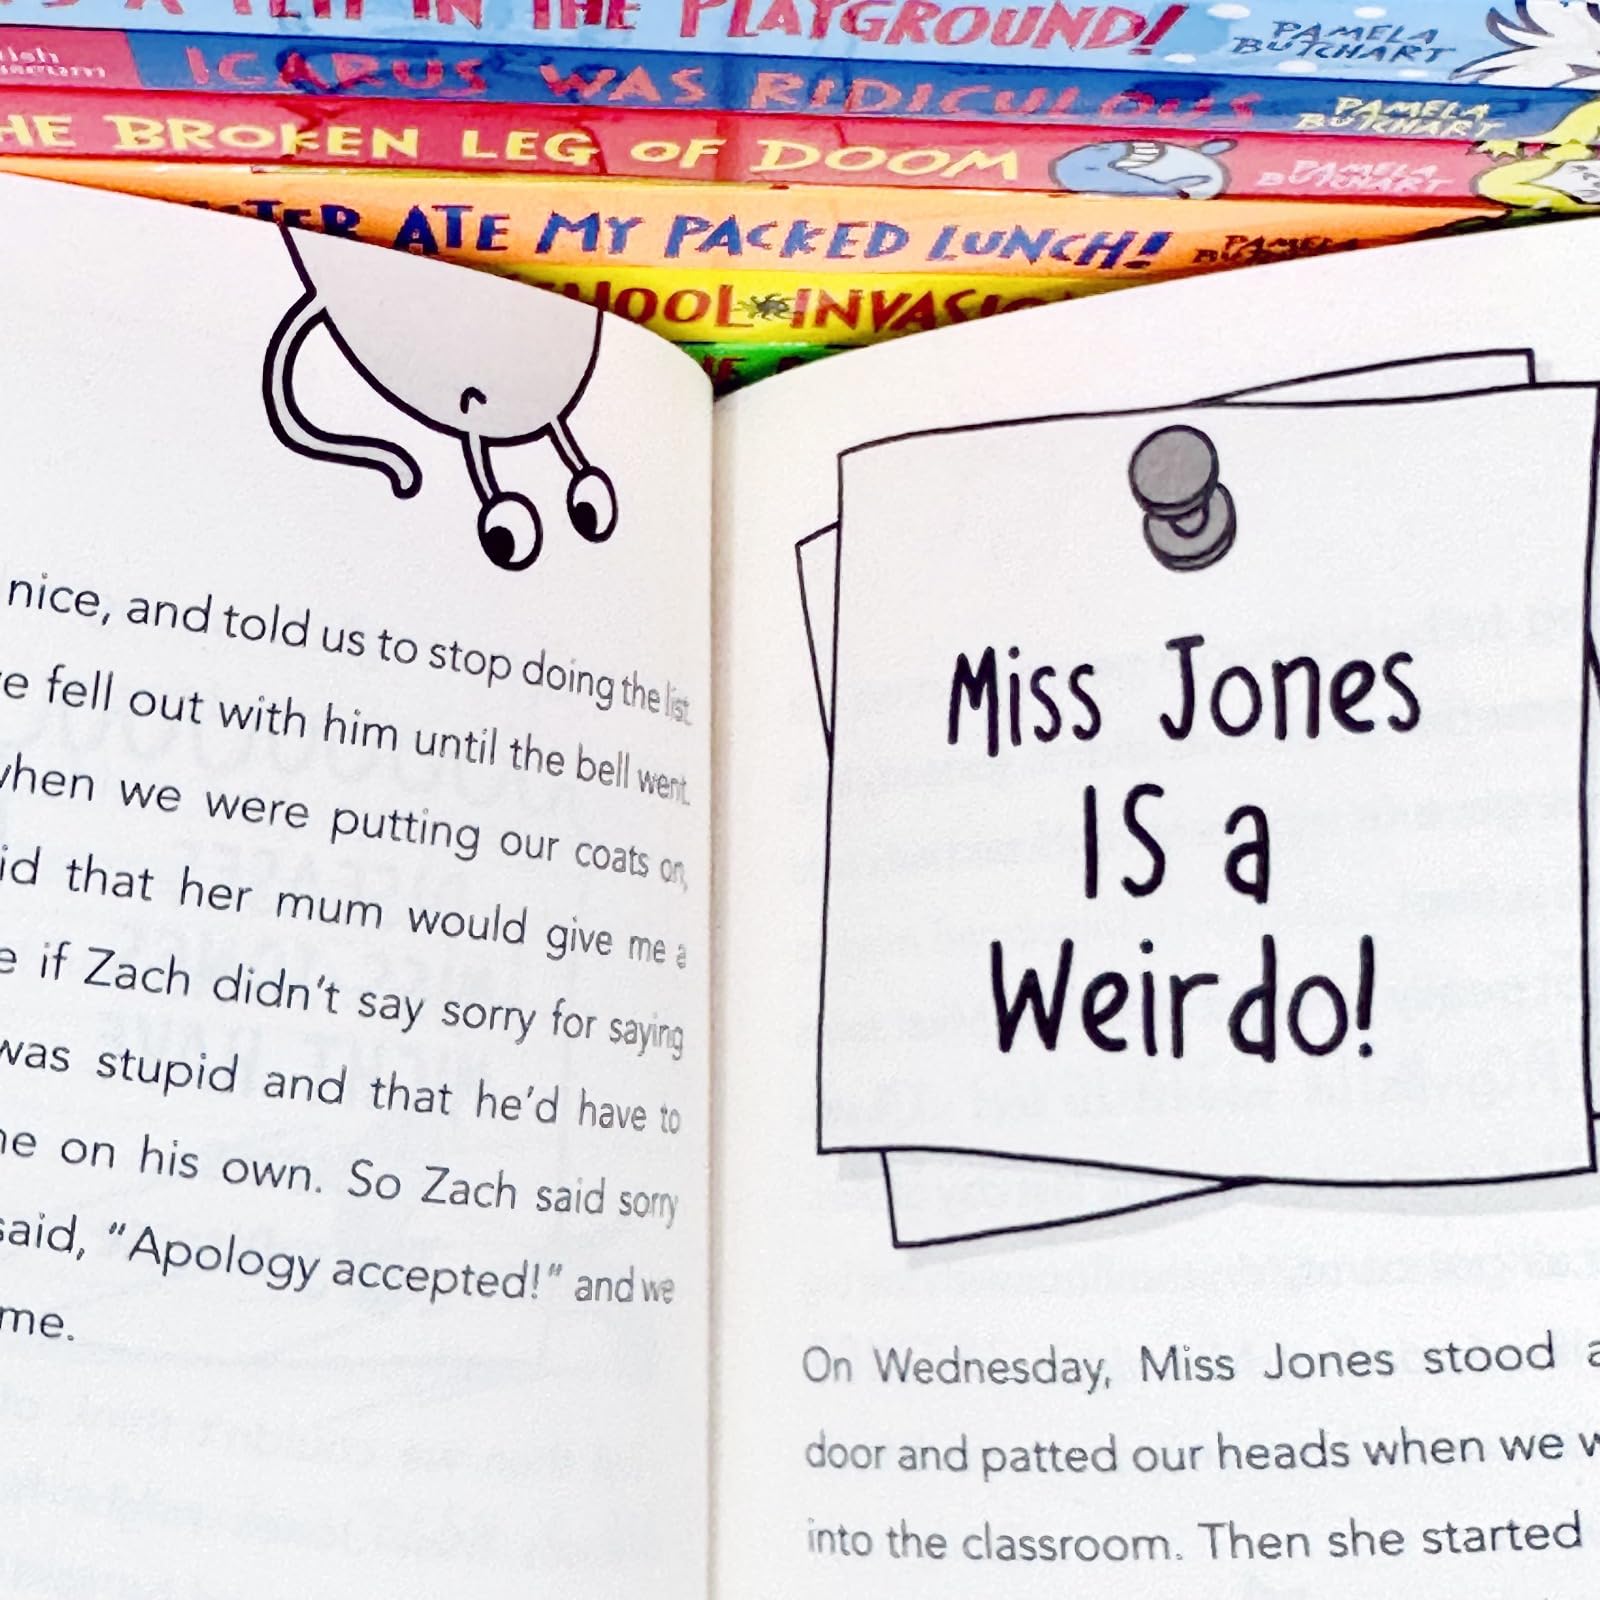 A YETI IN THE PLAYGROUND! PAMELA BUTCHART
ICARUS WAS RIDICULOUS PAMELA BUTCHART
HE BROKEN LEG OF DOOM PAMELA BUTCHART
ATE MY PACKED LUNCH!
INVASI
nice, and told us to stop doing the list.
e fell out with him until the bell went.
when we were putting our coats on,
id that her mum would give me a
e if Zach didn't say sorry for saying
was stupid and that he'd have to
ne on his own. So Zach said sorry
said, "Apology accepted!" and we
me.
Miss Jones
IS a
Weirdo!
On Wednesday, Miss Jones stood a
door and patted our heads when we w
into the classroom. Then she started